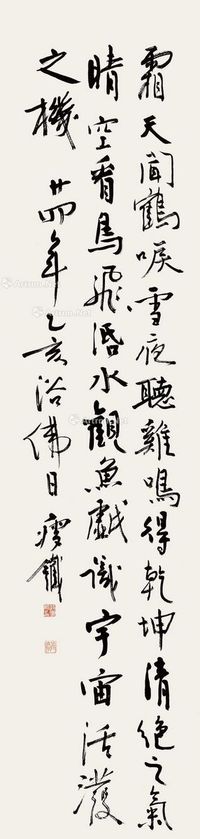 霜天闻鶴唳雪夜聽雞鳴得乾坤清絶之氣
晴空看鳥飛活水觀魚戲識宇宙活潑
之機 廿四年乙亥浴佛日 瘦鐵